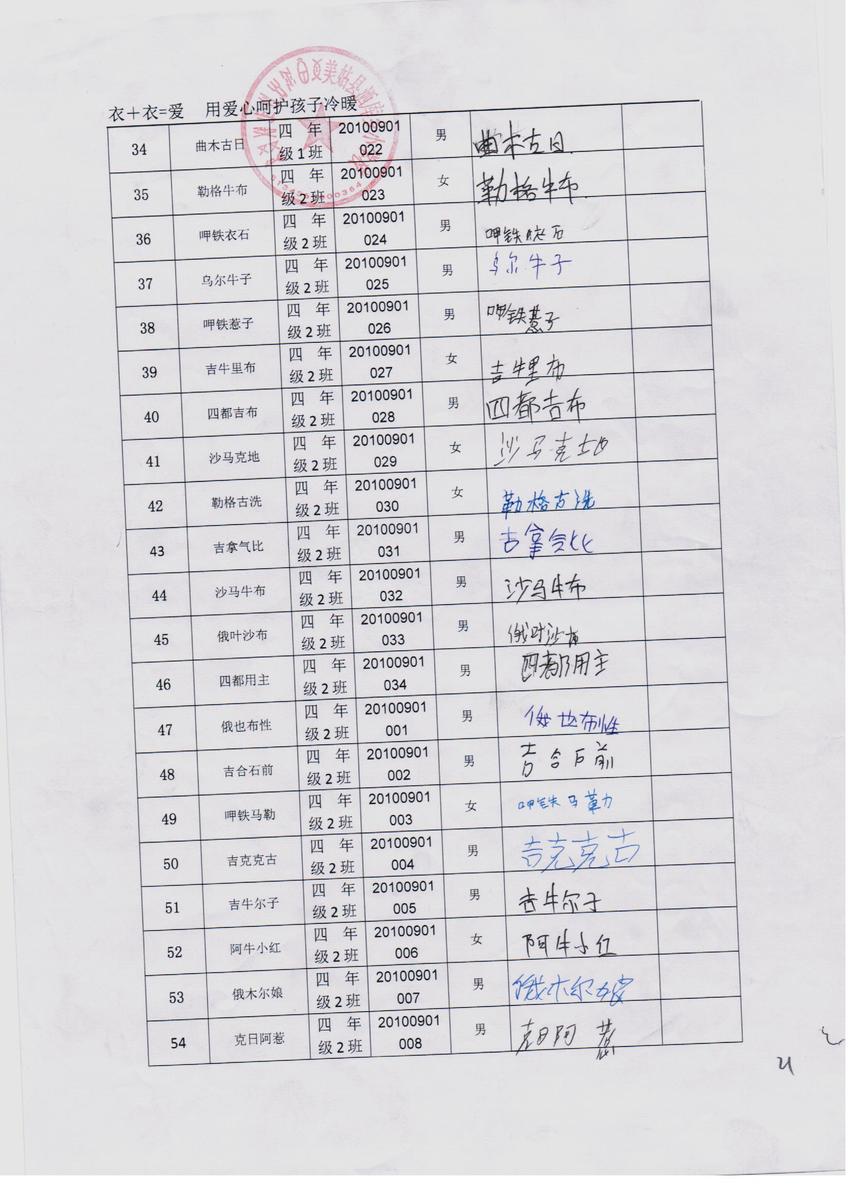 衣＋衣=爱　用爱心呵护孩子冷暖
34 曲木古日 四年级1班 20100901022 男 曲木古日
35 勒格牛布 四年级2班 20100901023 女 勒格牛布
36 呷铁衣石 四年级2班 20100901024 男 呷铁衣石
37 乌尔牛子 四年级2班 20100901025 男 乌尔牛子
38 呷铁惹子 四年级2班 20100901026 男 呷铁惹子
39 吉牛里布 四年级2班 20100901027 女 吉牛里布
40 四都吉布 四年级2班 20100901028 男 四都吉布
41 沙马克地 四年级2班 20100901029 女 沙马克地
42 勒格古洗 四年级2班 20100901030 女 勒格古洗
43 吉拿气比 四年级2班 20100901031 男 古拿气比
44 沙马牛布 四年级2班 20100901032 男 沙马牛布
45 俄叶沙布 四年级2班 20100901033 男 俄叶沙布
46 四都用主 四年级2班 20100901034 男 四都用主
47 俄也布性 四年级2班 20100901001 男 俄也布性
48 吉合石前 四年级2班 20100901002 男 吉合石前
49 呷铁马勒 四年级2班 20100901003 女 呷铁马勒
50 吉克克古 四年级2班 20100901004 男 吉克克古
51 吉牛尔子 四年级2班 20100901005 男 吉牛尔子
52 阿牛小红 四年级2班 20100901006 女 阿牛小红
53 俄木尔娘 四年级2班 20100901007 男 俄木尔娘
54 克日阿惹 四年级2班 20100901008 男 克日阿惹